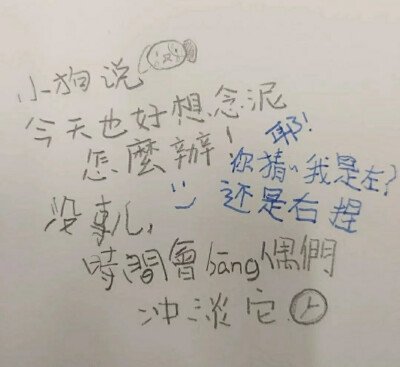 小狗说
今天也好想念泥
怎麼辦!
耶!
你猜、我是左?
还是右捏
没事儿,
時間會bāng偶們
冲淡它